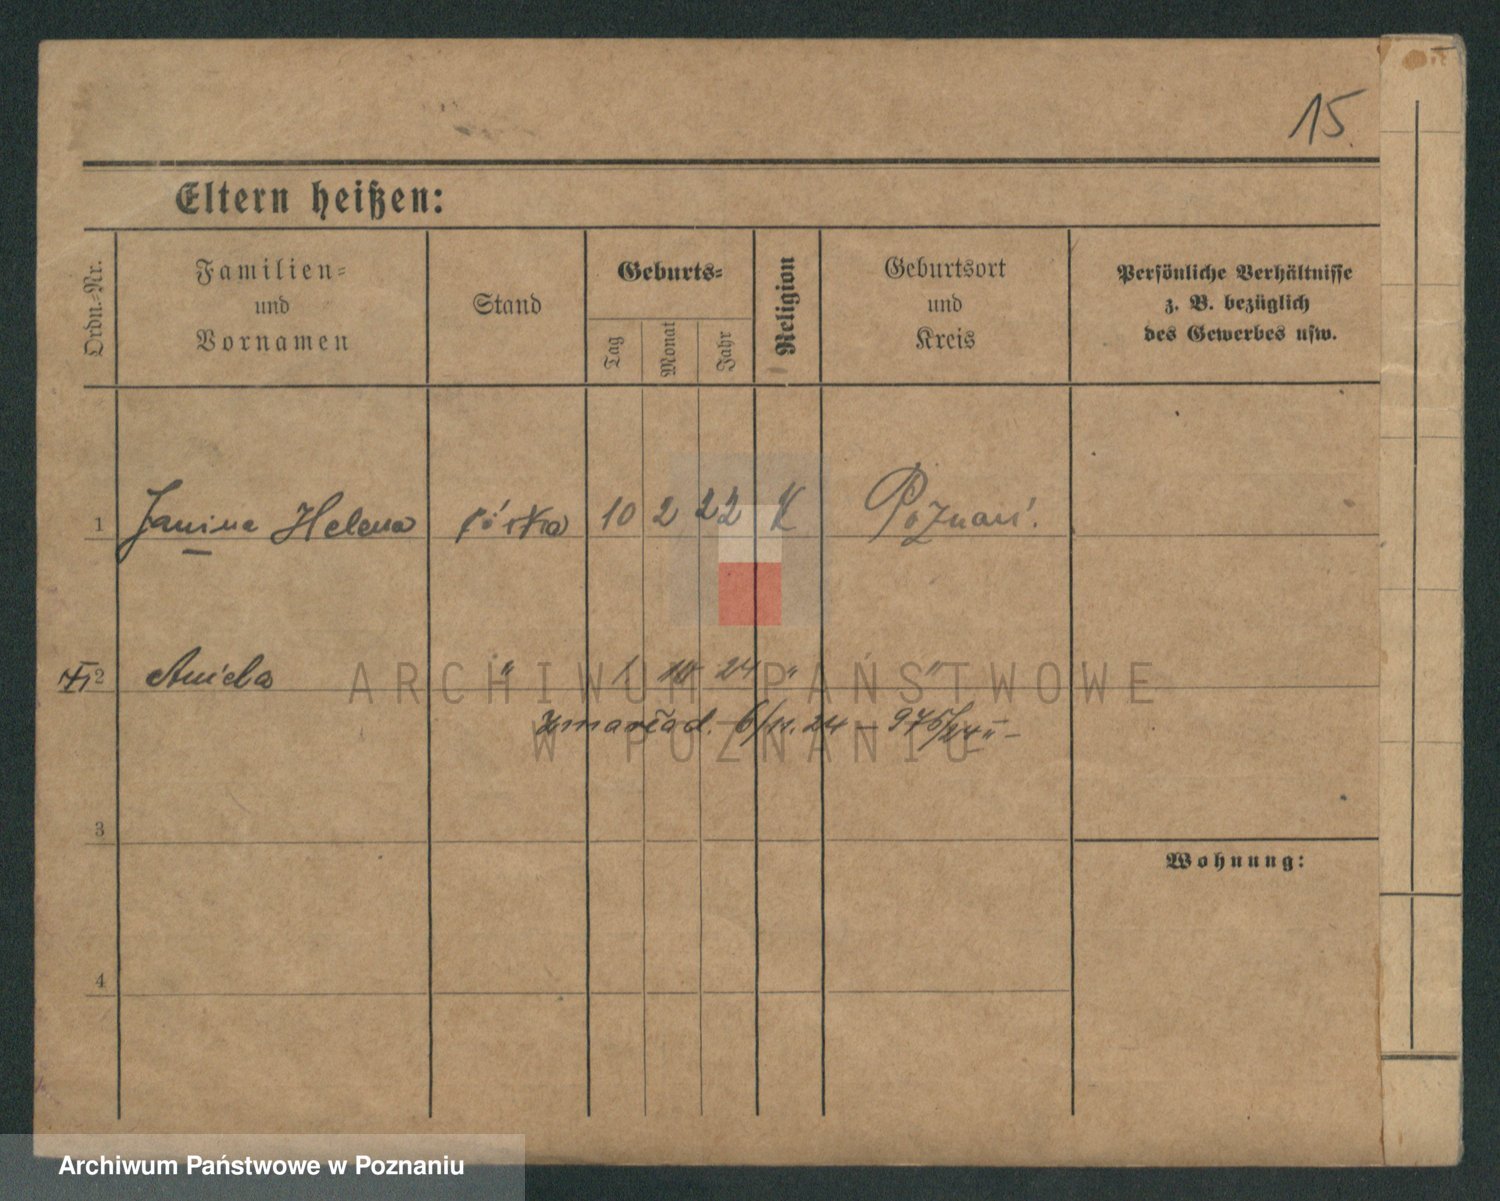 15.
Eltern heißen:
Ordn.-Nr.
Familien-
und
Vornamen
Stand
Geburts-
Tag
Monat
Jahr
Religion
Geburtsort
und
Kreis
Persönliche Verhältnisse
z. B. bezüglich
des Gewerbes usw.
1 Janina Helena córka 10 2 22 K Poznań.
2 Aniela " 1 24 " "
ARCHIWUM PAŃSTWOWE
W POZNANIU
zmarła d. 6/11. 24 –
3
Wohnung:
4
Archiwum Państwowe w Poznaniu